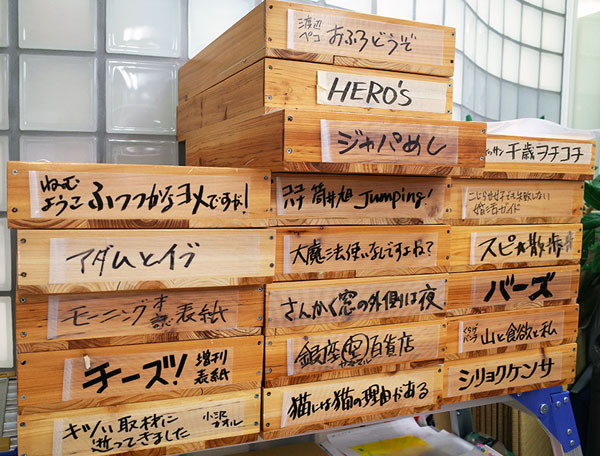 渡辺
ペコ
おふろどうぞ
HERO's
ジャパめし
千歳ヲチコチ
ねむ
ようこ
ふつつかなヨメですが!
筒井旭
Jumping!
婚活ガイド
アダムとイブ
大魔法使いなしですよね?
スピ☆散歩
モーニング
本誌
表紙
さんかく窓の外側は夜
バーズ
チーズ!
増刊
表紙
銀座
百貨店
山と食欲と私
キツい取材に
逝ってきました
小沢
カオル
猫には猫の理由がある
シリョクケンサ